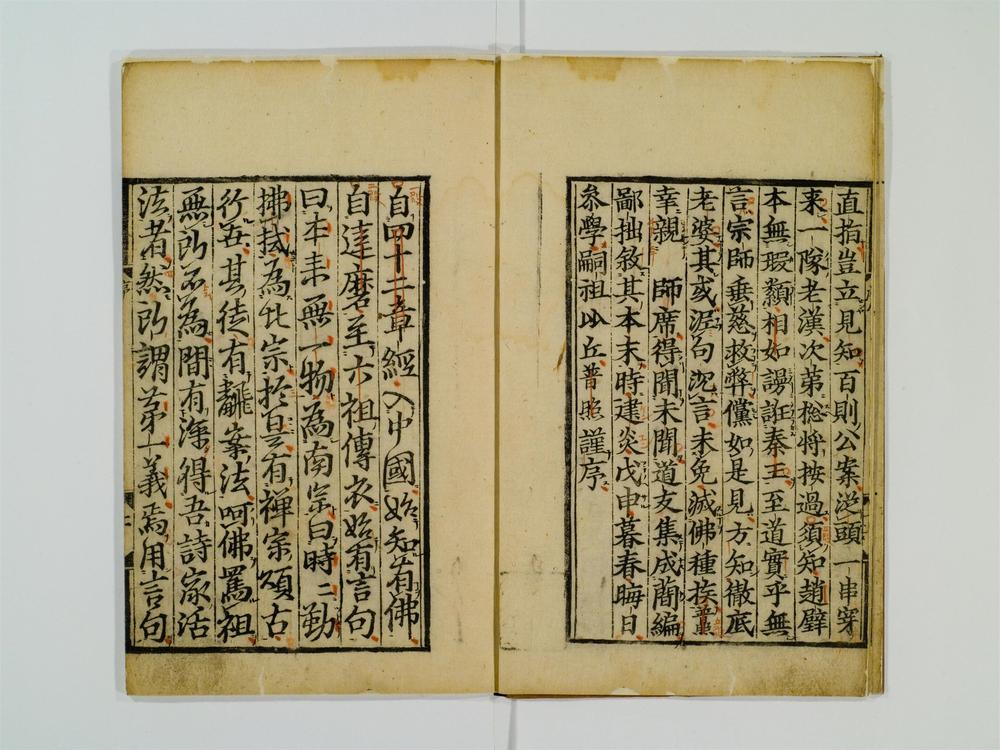 直指豈立見知百則公案从頭一串穿
来一隊老漢次第捴将按過須知趙璧
本無瑕纇相如謾誑秦王至道實乎無
言宗師垂慈救弊儻如是見方知徹底
老婆其或泥句沉言未免滅佛種族普照
幸親 師席得聞未聞道友集成蕳編
鄙拙敘其本末時建炎戊申暮春晦日
參學嗣祖比丘普照謹序
自四十二章經入中國始知有佛
自達磨至六祖傳衣始有言句
曰本来無一物為南宗曰時〻勤
拂拭為北宗於是有禪宗頌古
行丗其徒有翻案法呵佛罵祖
無所不為間有深得吾詩家活
法者然所謂苐一義焉用言句